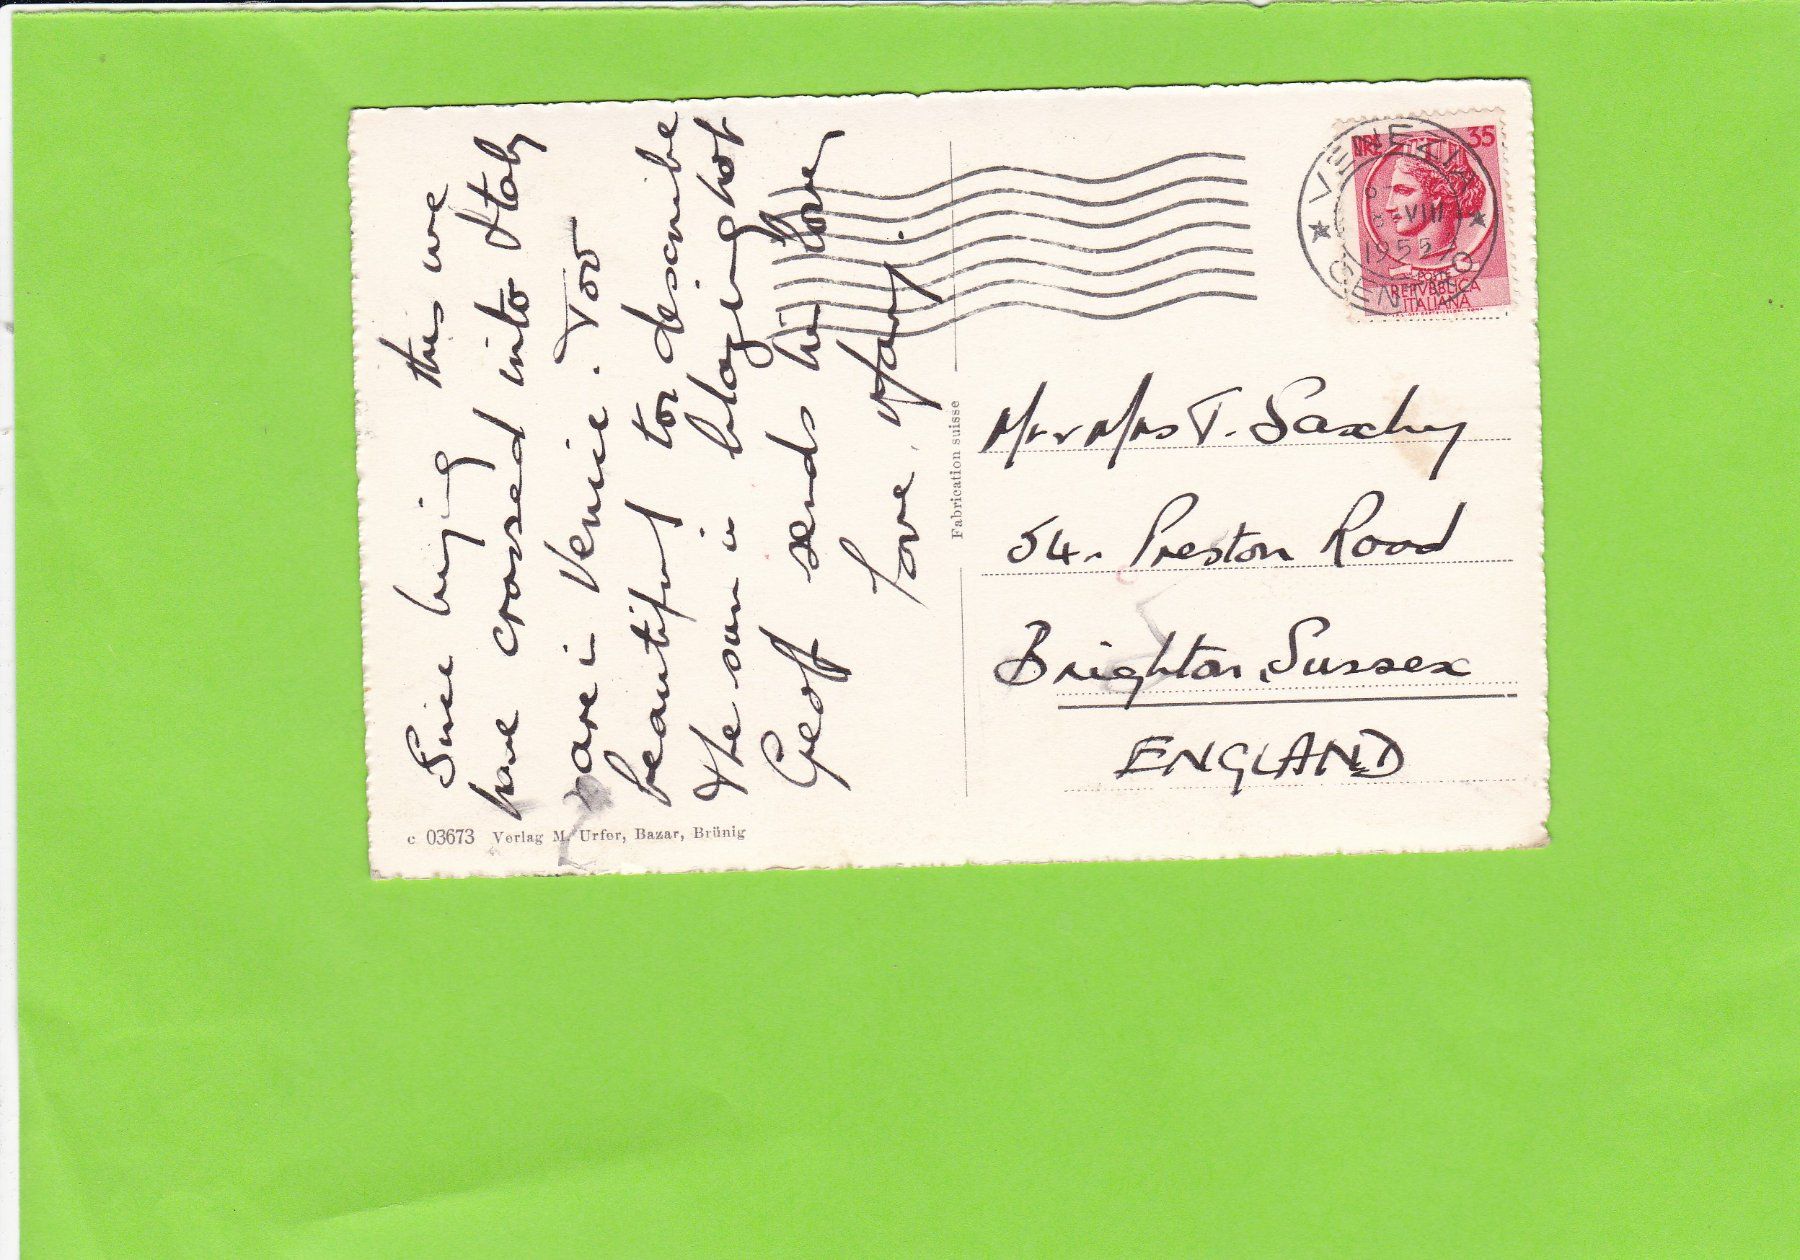 Since buying this we
have crossed into Italy
& are in Venice. Too
beautiful for describe
& the sun is blazing hot
Geoff sends his love,
Love, Mary.
c 03673 Verlag M. Urfer, Bazar, Brünig
Fabrication suisse
VENEZIA
8-VIII
1955
CENTRO
LIRE 35
POSTE
REPVBBLICA
ITALIANA
Mr & Mrs T. Saxby
54. Preston Road
Brighton, Sussex
ENGLAND